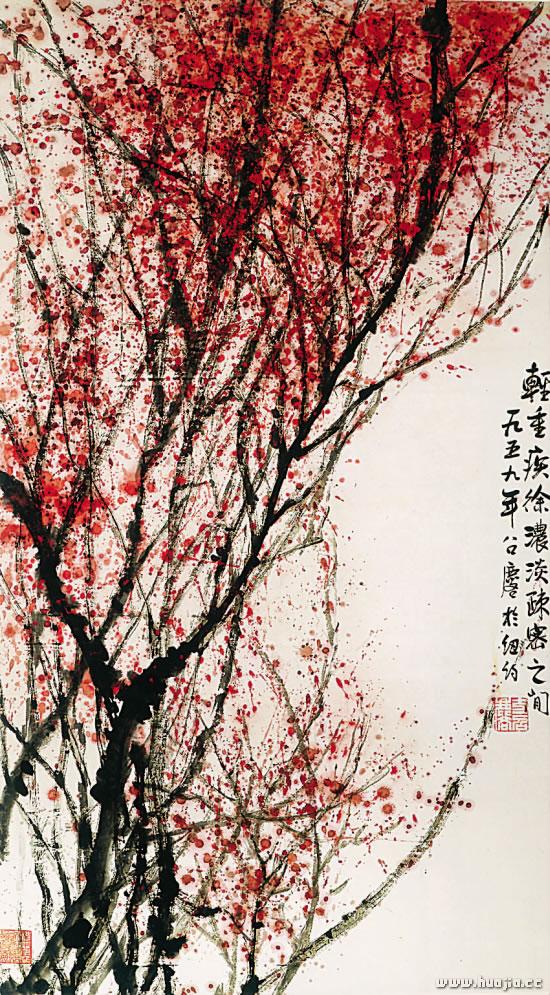 輕重疾徐濃淡疎密之間
一九五九年公慶於紐約
www.huajia.cc